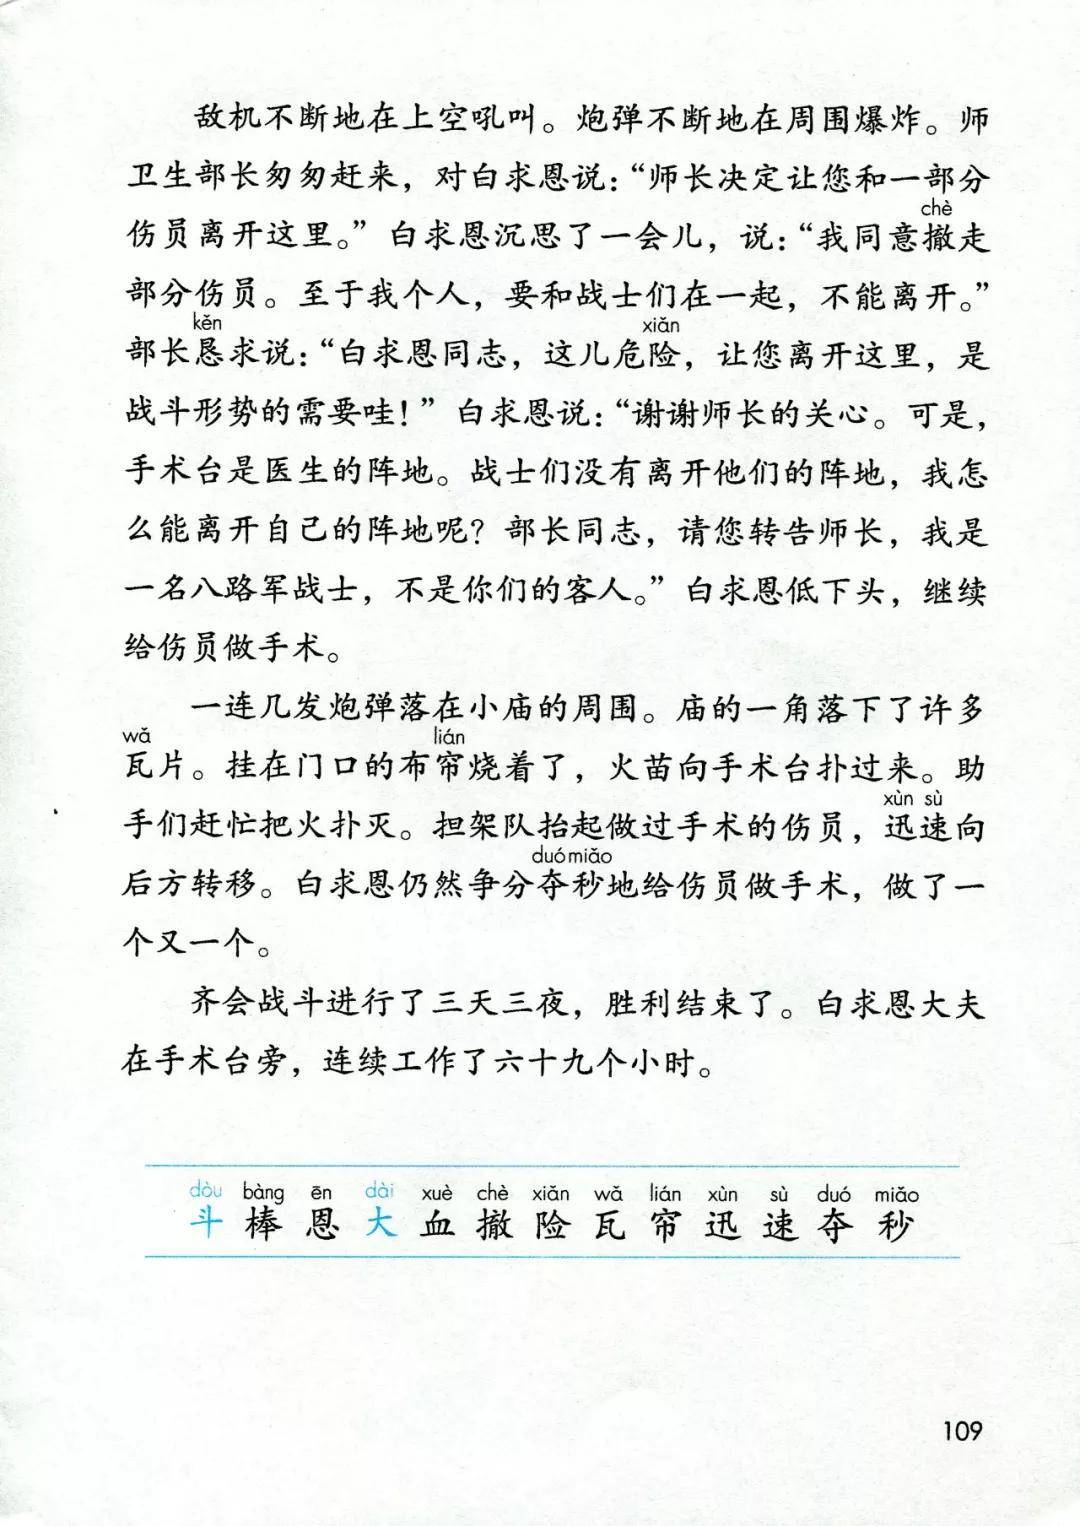 敌机不断地在上空吼叫。炮弹不断地在周围爆炸。师
卫生部长匆匆赶来，对白求恩说：“师长决定让您和一部分
chè
伤员离开这里。”白求恩沉思了一会儿，说：“我同意撤走
部分伤员。至于我个人，要和战士们在一起，不能离开。”
kěn xiǎn
部长恳求说：“白求恩同志，这儿危险，让您离开这里，是
战斗形势的需要哇！”白求恩说：“谢谢师长的关心。可是，
手术台是医生的阵地。战士们没有离开他们的阵地，我怎
么能离开自己的阵地呢？部长同志，请您转告师长，我是
一名八路军战士，不是你们的客人。”白求恩低下头，继续
给伤员做手术。
一连几发炮弹落在小庙的周围。庙的一角落下了许多
wǎ lián
瓦片。挂在门口的布帘烧着了，火苗向手术台扑过来。助
xùn sù
手们赶忙把火扑灭。担架队抬起做过手术的伤员，迅速向
duó miǎo
后方转移。白求恩仍然争分夺秒地给伤员做手术，做了一
个又一个。
齐会战斗进行了三天三夜，胜利结束了。白求恩大夫
在手术台旁，连续工作了六十九个小时。
dòu bàng ēn dài xuè chè xiǎn wǎ lián xùn sù duó miǎo
斗 棒 恩 大 血 撤 险 瓦 帘 迅 速 夺 秒
109